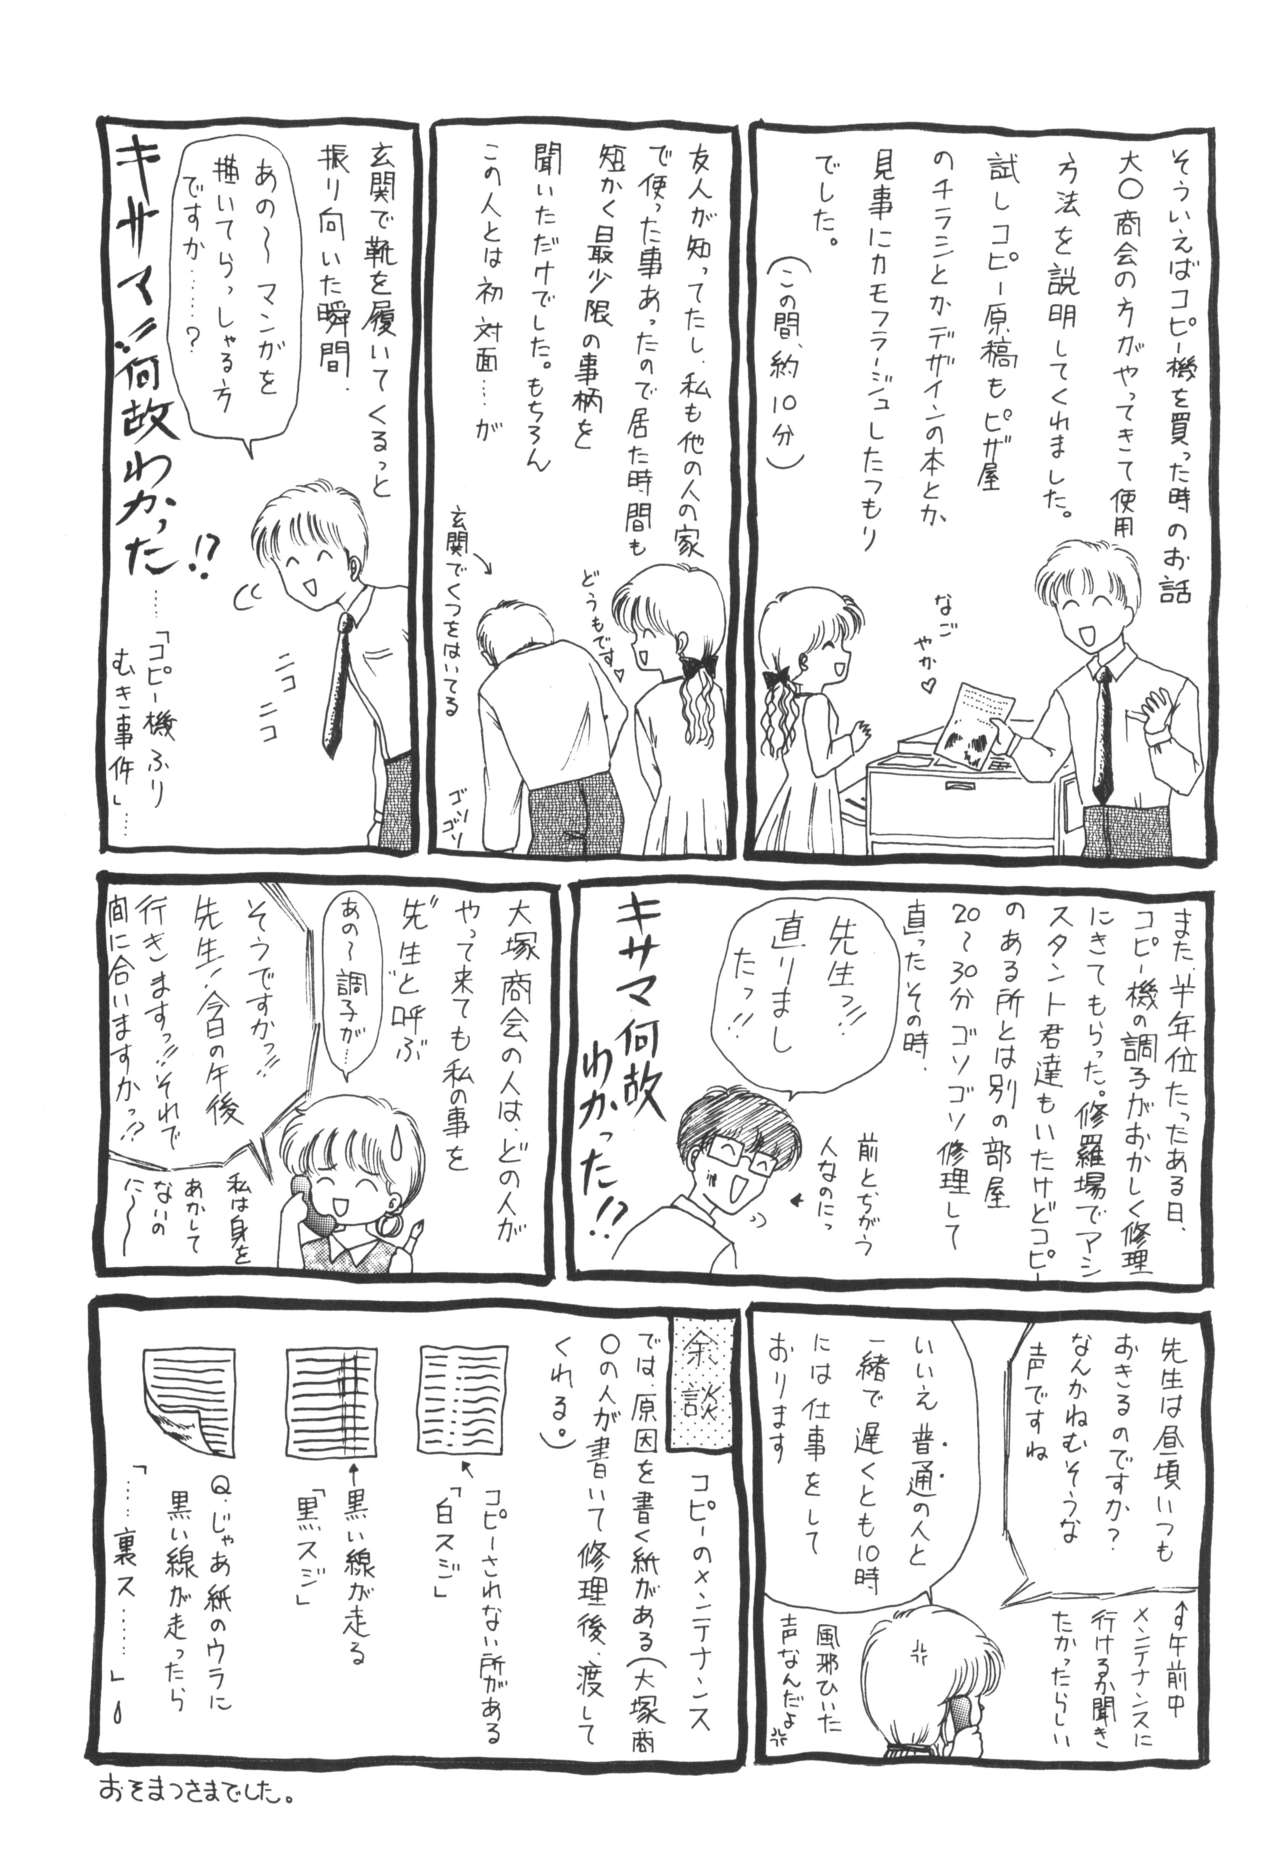 そういえばコピー機を買った時のお話
大〇商会の方がやってきて使用
方法を説明してくれました。
試しコピー原稿もピザ屋
のチラシとかデザインの本とか、
見事にカモフラージュしたつもり
でした。
(この間、約10分)
なご
やか♡
友人が知ってたし、私も他の人の家
で使った事あったので居た時間も
短かく最少限の事柄を
聞いただけでした。もちろん
この人とは初対面…が
どうもです♡
玄関でくつをはいてる
ゴソゴソ
玄関で靴を履いてくるっと
振り向いた瞬間、
あの〜マンガを
描いてらっしゃる方
ですか……?
キサマ!!何故わかった!?
……「コピー機ふり
むき事件」……
ニコ
ニコ
また、半年位たったある日、
コピー機の調子がおかしく修理
にきてもらった。修羅場でアシ
スタント君達もいたけどコピー
のある所とは別の部屋
20〜30分ゴソゴソ修理して
直ったその時、
先生っ!!
直りまし
たっ!!
前とちがう
人なのにっ
キサマ何故
わかった!?
大塚商会の人は、どの人が
やって来ても私の事を
"先生"と呼ぶ
あの〜調子が…
そうですかっ!!
先生!今日の午後
行きますっ!!それで
間に合いますかっ!?
私は身を
あかして
ないの
に〜
先生は昼頃いつも
おきるのですか?
なんかねむそうな
声ですね
↑す午前中
メンテナンスに
行けるか聞き
たかったらしい
いいえ普通の人と
一緒で遅くとも10時
には仕事をして
おります
風邪ひいた
声なんだよ
余談
コピーのメンテナンス
では原因を書く紙がある(大塚商
〇の人が書いて修理後、渡して
くれる。)
コピーされない所がある
「白スジ」
黒い線が走る
「黒スジ」
Q.じゃあ紙のウラに
黒い線が走ったら
「……裏ス……」
おそまつさまでした。